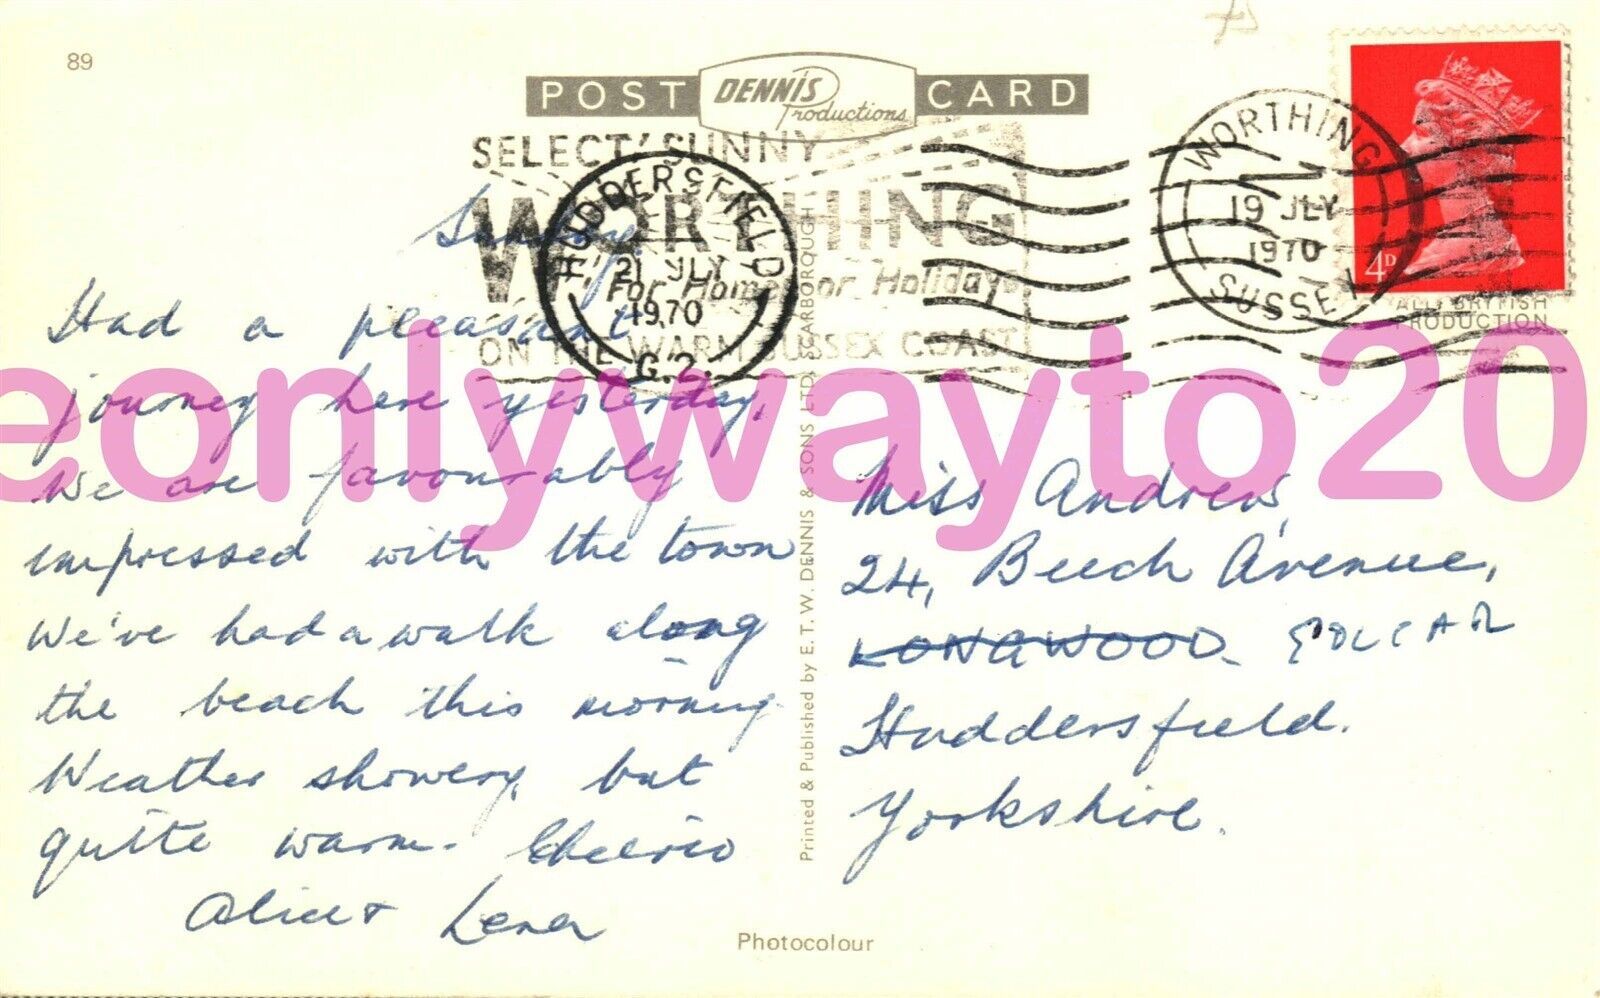 89
POST DENNIS Productions CARD
SELECT SUNNY
WORTHING
For Homes or Holidays
ON THE WARM SUSSEX COAST
HUDDERSFIELD
21 JLY
1970
G.2.
WORTHING
19 JLY
1970
SUSSEX
4D
ALL BRITISH
PRODUCTION
Sunday.
Had a pleasant
journey here yesterday.
We are favourably
impressed with the town
We've had a walk along
the beach this morning.
Weather showery, but
quite warm. Cheerio
Alice & Lena
Printed & Published by E. T. W. DENNIS & SONS LTD. SCARBOROUGH
Miss Andrew,
24, Beech Avenue,
LONGWOOD. GOLCAR
Huddersfield.
Yorkshire.
Photocolour
eonlywayto20